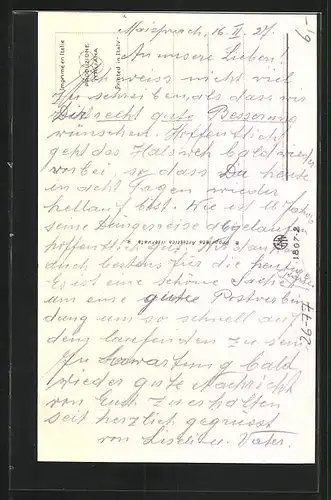 Maisprach, 16. II. 27.
An unsere Lieben!
Ich weiss nicht viel
zu schreiben als dass wir
Dir recht gute Besserung
wünschen. Hoffentlich
geht das Halsweh bald wieder
vorbei, so dass Du heute
in acht Tagen wieder
hellauf bist. Wie ist
seine abgelaufen
hoffentlich gut. Ich danke
Euch bestens für die heutige
Es ist eine schöne Sache
um eine gute Postverbin
dung um so schnell auf
dem laufenden zu sein.
In Erwartung bald
wieder gute Nachricht
von Euch zu erhalten
seit herzlich gegrüsst
von Vater.
Imprimé en Italie
PRODUZIONE
ITALIANA
Printed in Italie
Proprietà Artistica riservata
1807-2
26-77